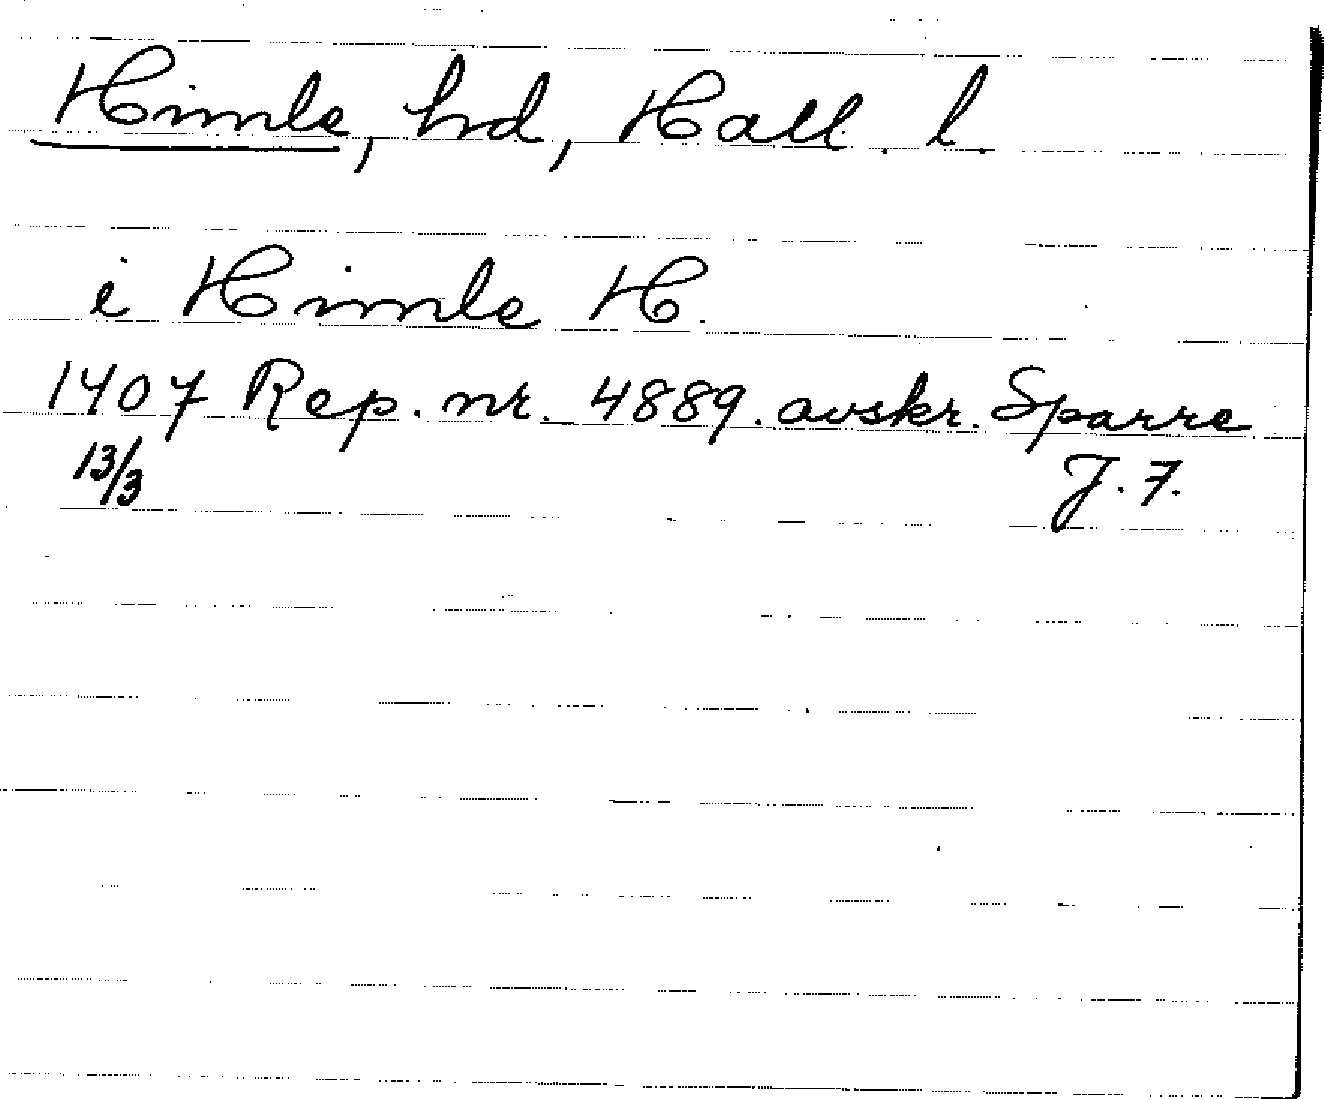 Himle, hd, Hall. l.
i Himle H.
1407 Rep. nr. 4889. avskr. Sparre
13/3 J. F.